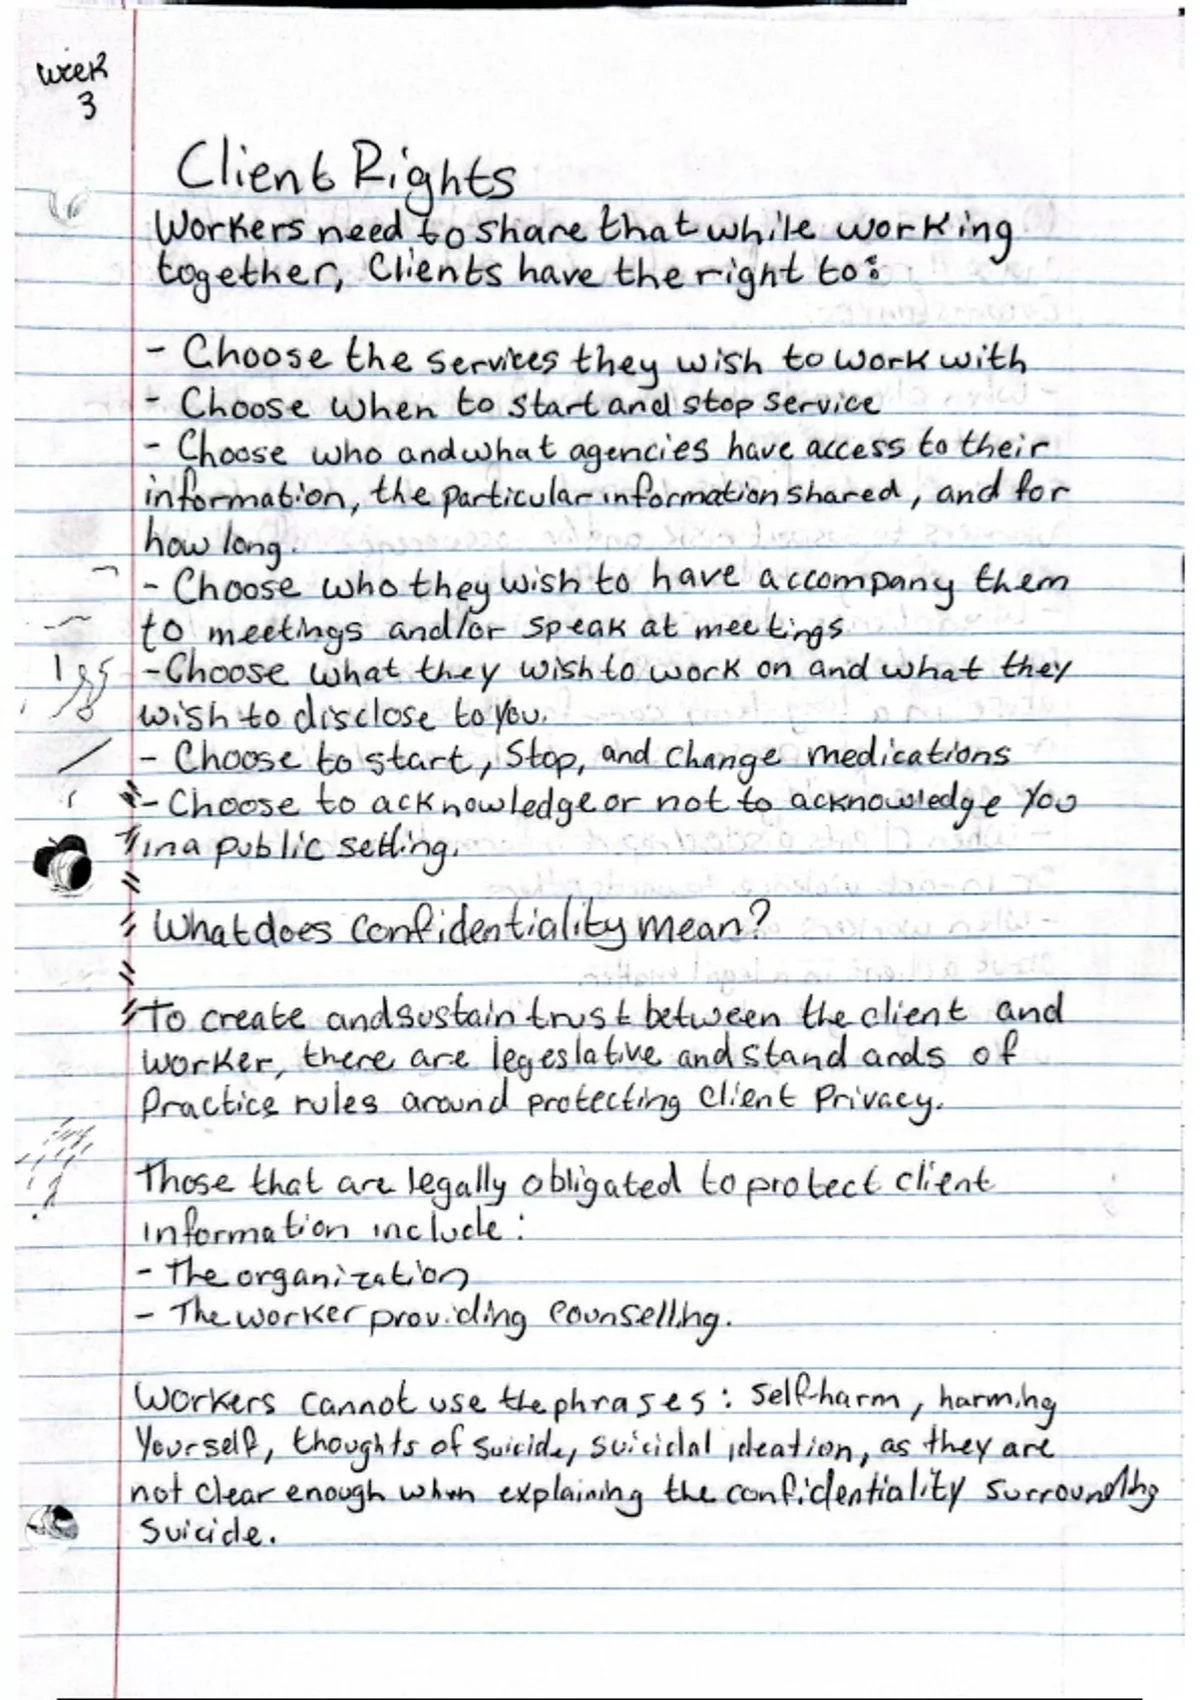 Week
3
Client Rights
Workers need to share that while working
together, Clients have the right to:
- Choose the services they wish to work with
- Choose when to start and stop service
- Choose who and what agencies have access to their
information, the particular information shared, and for
how long.
- Choose who they wish to have accompany them
to meetings and/or speak at meetings
- Choose what they wish to work on and what they
wish to disclose to you.
- Choose to start, stop, and change medications
- Choose to acknowledge or not to acknowledge you
in a public setting.
What does confidentiality mean?
To create and sustain trust between the client and
worker, there are legeslative and standards of
Practice rules around protecting client Privacy.
Those that are legally obligated to protect client
information include:
- The organization
- The worker providing counselling.
Workers cannot use the phrases: Self-harm, harming
Yourself, thoughts of suicide, suicidal ideation, as they are
not clear enough when explaining the confidentiality surrounding
Suicide.